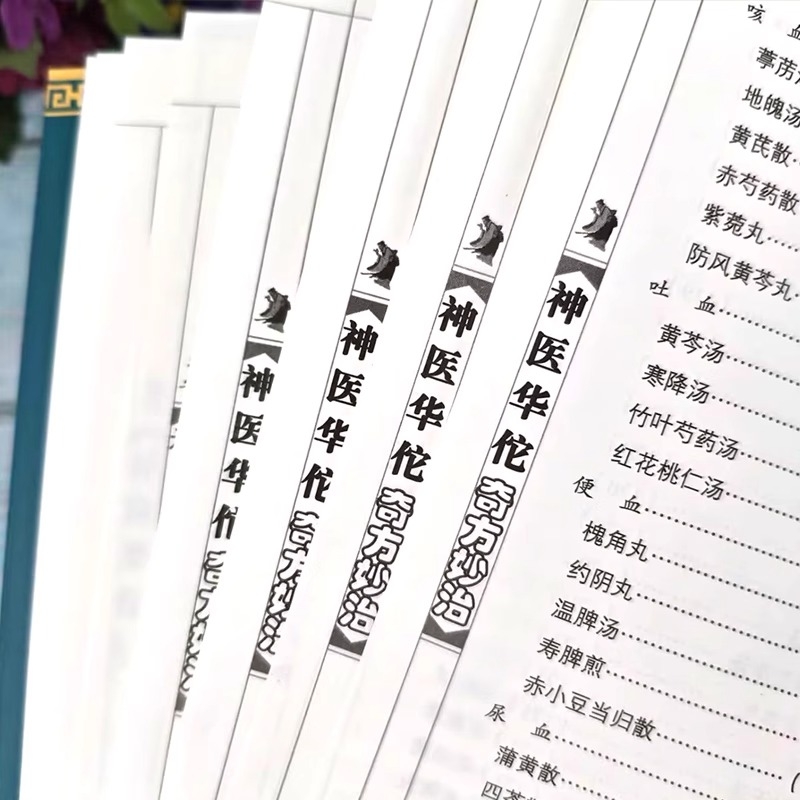 神医华佗
奇方妙治
神医华佗
奇方妙治
神医华佗
奇方妙治
神医华佗
奇方妙治
咳 血
葶苈
地魄汤
黄芪散
赤芍药散
紫菀丸
防风黄芩丸
吐 血
黄芩汤
寒降汤
竹叶芍药汤
红花桃仁汤
便 血
槐角丸
约阴丸
温脾汤
寿脾煎
赤小豆当归散
尿 血
蒲黄散